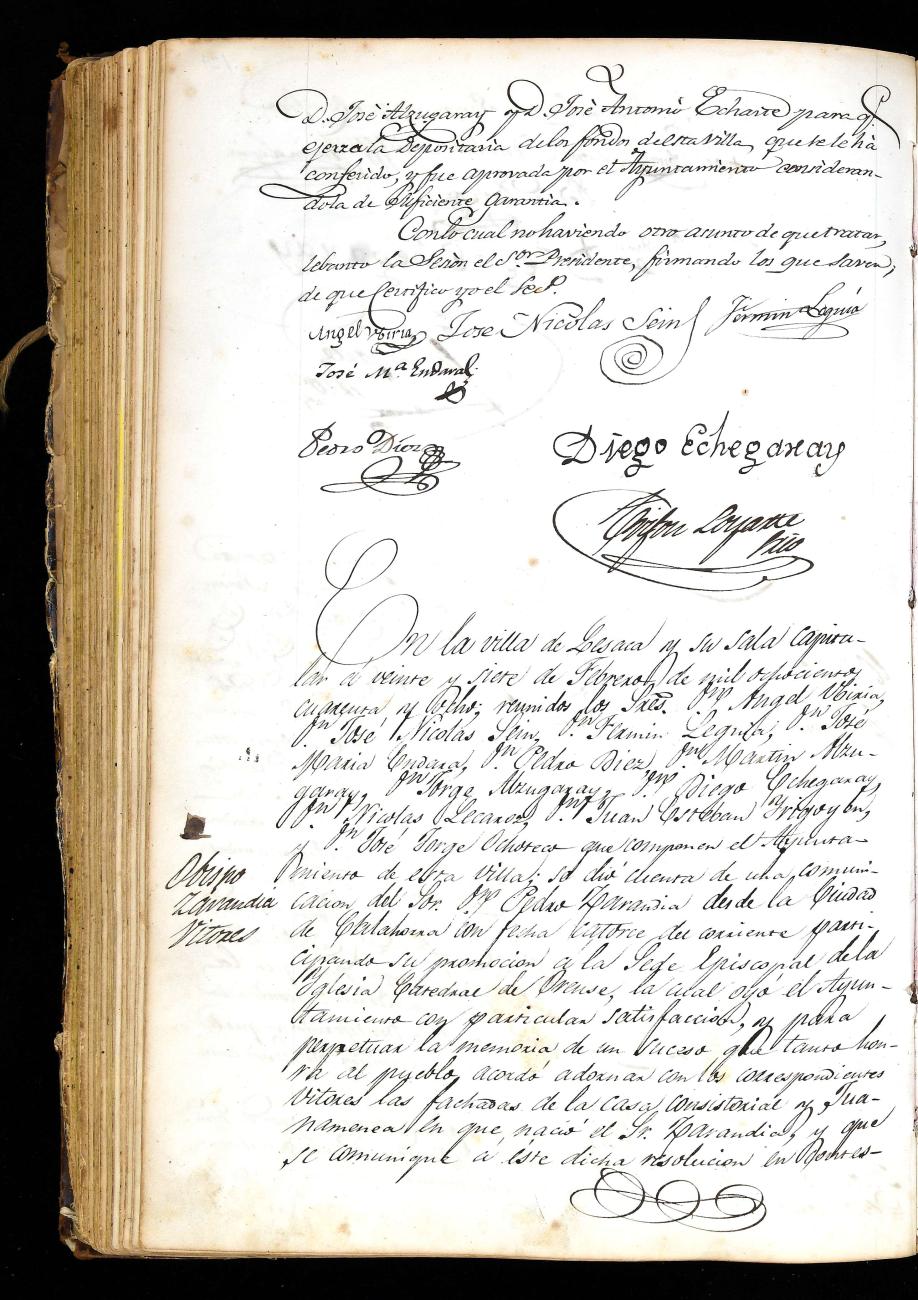 D. José Alzugaray y D. José Antonio Echarte para q.
ejerza la Depositaria de los fondos de esta Villa, que se le há
conferido, y fue aprovada por el Ayuntamiento consideran-
dola de suficiente garantia.
Con lo cual no haviendo otro asunto de que tratar,
lebanto la Sesion el Sor. Presidente, firmando los que saven;
de que Certifico yo el Sec.º
Angel Ubiria Jose Nicolas Sein Fermin Leguia
José Ma. Endara
Pedro Diez Diego Echegaray
Loyarte
Srio
En la villa de Lesaca y su sala capitu-
lar á veinte y siete de Febrero de mil ochocientos
cuarenta y ocho; reunidos los Sres. Dn. Angel Ubiria,
Dn. José Nicolás Sein, Dn. Fermin Leguia, Dn. José
Maria Endara, Dn. Pedro Diez, Dn. Martin Alzu-
garay, Dn. Jorge Alzugaray, Dn. Diego Echegaray,
Dn. Nicolas Lecaroz, Dn. Juan Esteban Yrigoyen,
y Dn. José Jorge Ochoteco que componen el Ayunta-
miento de esta villa; se dió cuenta de una comuni-
cacion del Sor. Dn. Pedro Zarandia desde la Ciudad
de Calahorra con fecha catorce del corriente parti-
cipando su promocion a la Sede Episcopal de la
Yglesia Catedral de Orense, la cual oyó el Ayun-
tamiento con particular satisfaccion, y para
perpetuar la memoria de un suceso que tanto hon-
ra al pueblo, acordó adornar con los correspondientes
vitores las fachadas de la casa consistorial y Jua-
namenea en que nació el Sr. Zarandia, y que
se comunique a este dicha resolucion en contes-
Obispo
Zarandia
Vitores